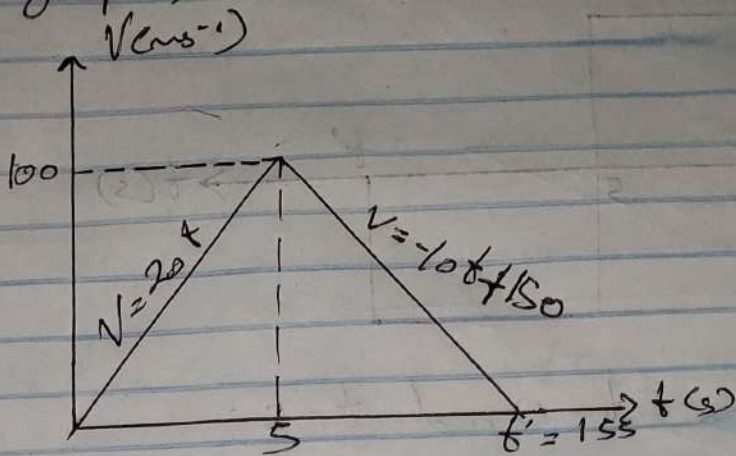 V(ms⁻¹)
100
V=20t
V=-10t+150
5
t'=15s
t(s)